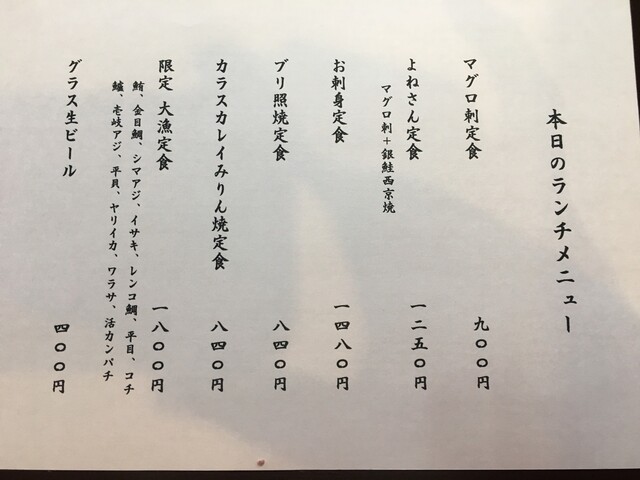 本日のランチメニュー
マグロ刺定食 九〇〇円
よねさん定食 一二五〇円
マグロ刺+銀鮭西京焼
お刺身定食 一四八〇円
ブリ照焼定食 八四〇円
カラスカレイみりん焼定食 八四〇円
限定 大漁定食 一八〇〇円
鮪、金目鯛、シマアジ、イサキ、レンコ鯛、平目、コチ
鱸、壱岐アジ、平貝、ヤリイカ、ワラサ、活カンパチ
グラス生ビール 四〇〇円